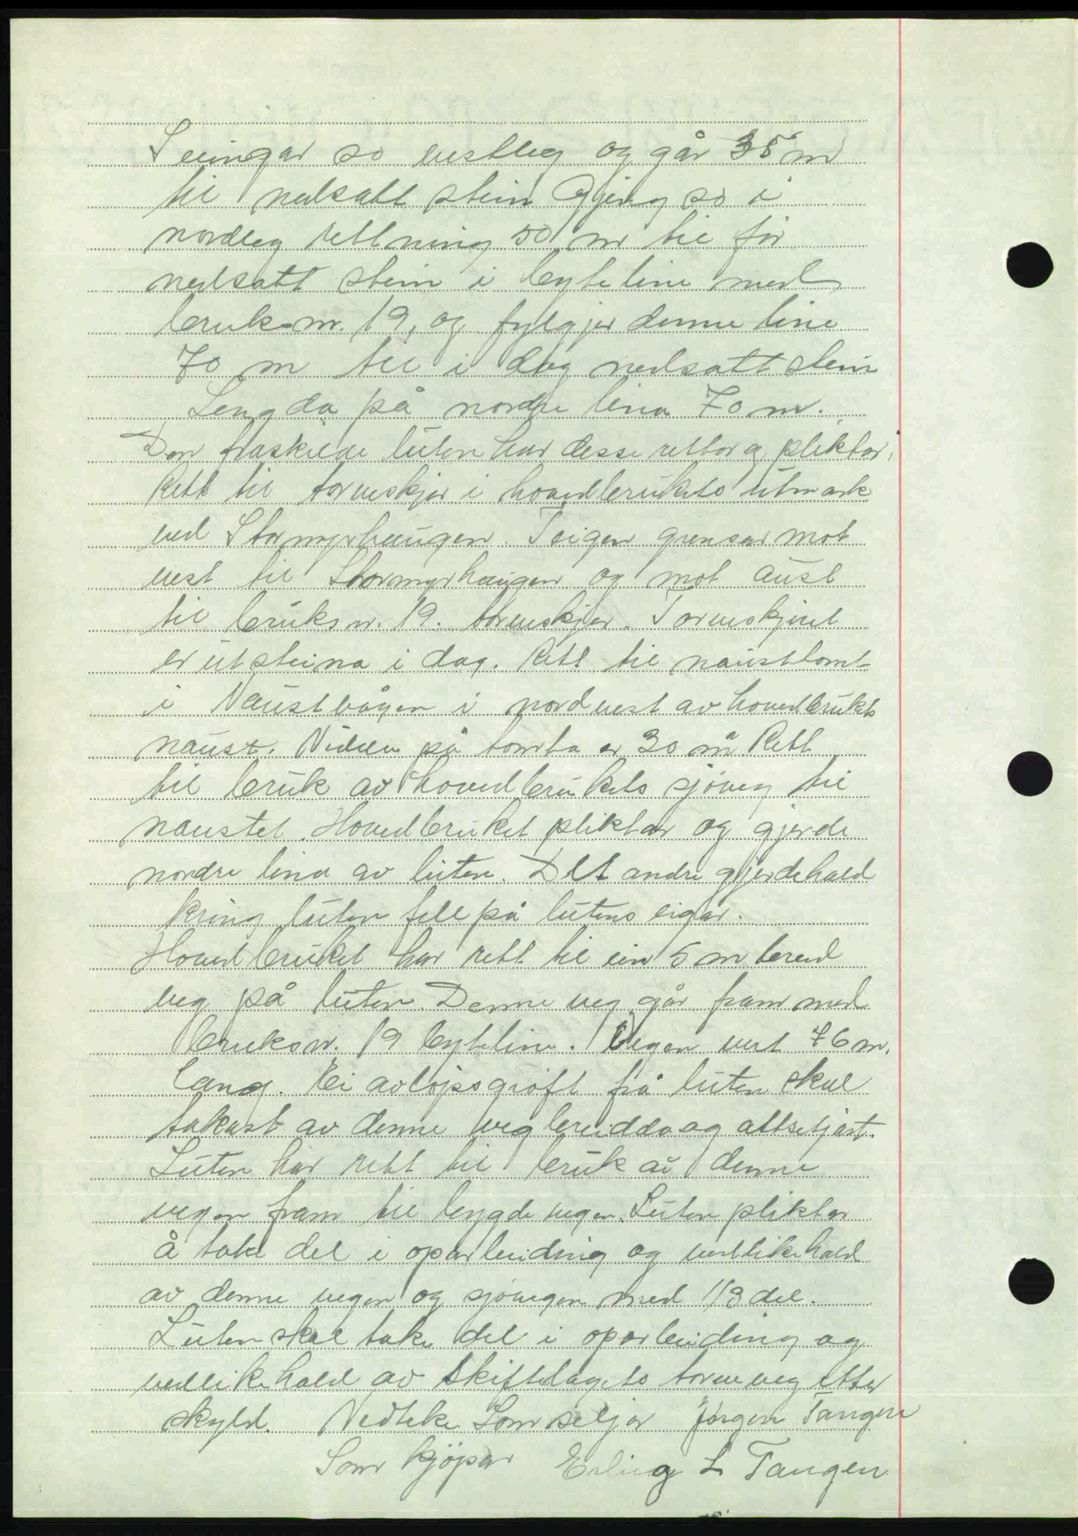 Svingar so vestleg og går 35 m
til nedsatt stein Gjeng so i
nordleg rettning 50 m til før
nedsatt stein i byteline med
bruksnr. 19, og fylgjer denne line
70 m til i dag nedsatt stein
Lengda på nordre lina 70 m.
Den fraskilde luten har desse rettar og pliktar:
Rett til torvskjær i hovedbrukets utmark
ved Stormyrhaugen. Teigen grensar mot
vest til Stormyrhaugen og mot aust
til bruksnr. 19. torvskjær. Torvskjæret
er utsteina i dag. Rett til nausttomt
i Naustvågen i nordvest av hovedbrukets
naust. Vidden på tomta er 30 m² Rett
til bruk av hovedbrukets sjøveg til
naustet. Hovedbruket pliktar og gjerde
nordre lina av luten. Det andre gjerdehald
kring luten fell på lutens eigar.
Hovedbruket har rett til ein 5 m breid
veg på luten. Denne veg går fram med
bruksnr. 19 byteline. Vegen vert 76 m.
lang. Ei avløpsgrøft frå luten skal
takast av denne vegbreidda og attsetjast.
Luten har rett til bruk av denne
vegen fram til bygdevegen. Luten pliktar
å take del i oparbeiding og vedlikehald
av denne vegen og sjøvegen med 1/3 del.
Luten skal take del i oparbeiding og
vedlikehald av skiftelagets torvveg etter
skyld. Vedteke Som seljar Jørgen Tangen
Som kjøpar Erling L Tangen